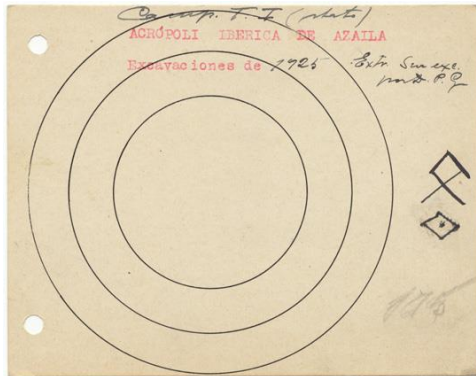 Camp. T. I (plato)
ACRÓPOLI IBERICA DE AZAILA
Excavaciones de 1925
Extr. Sur exc.
por D. P. G
175